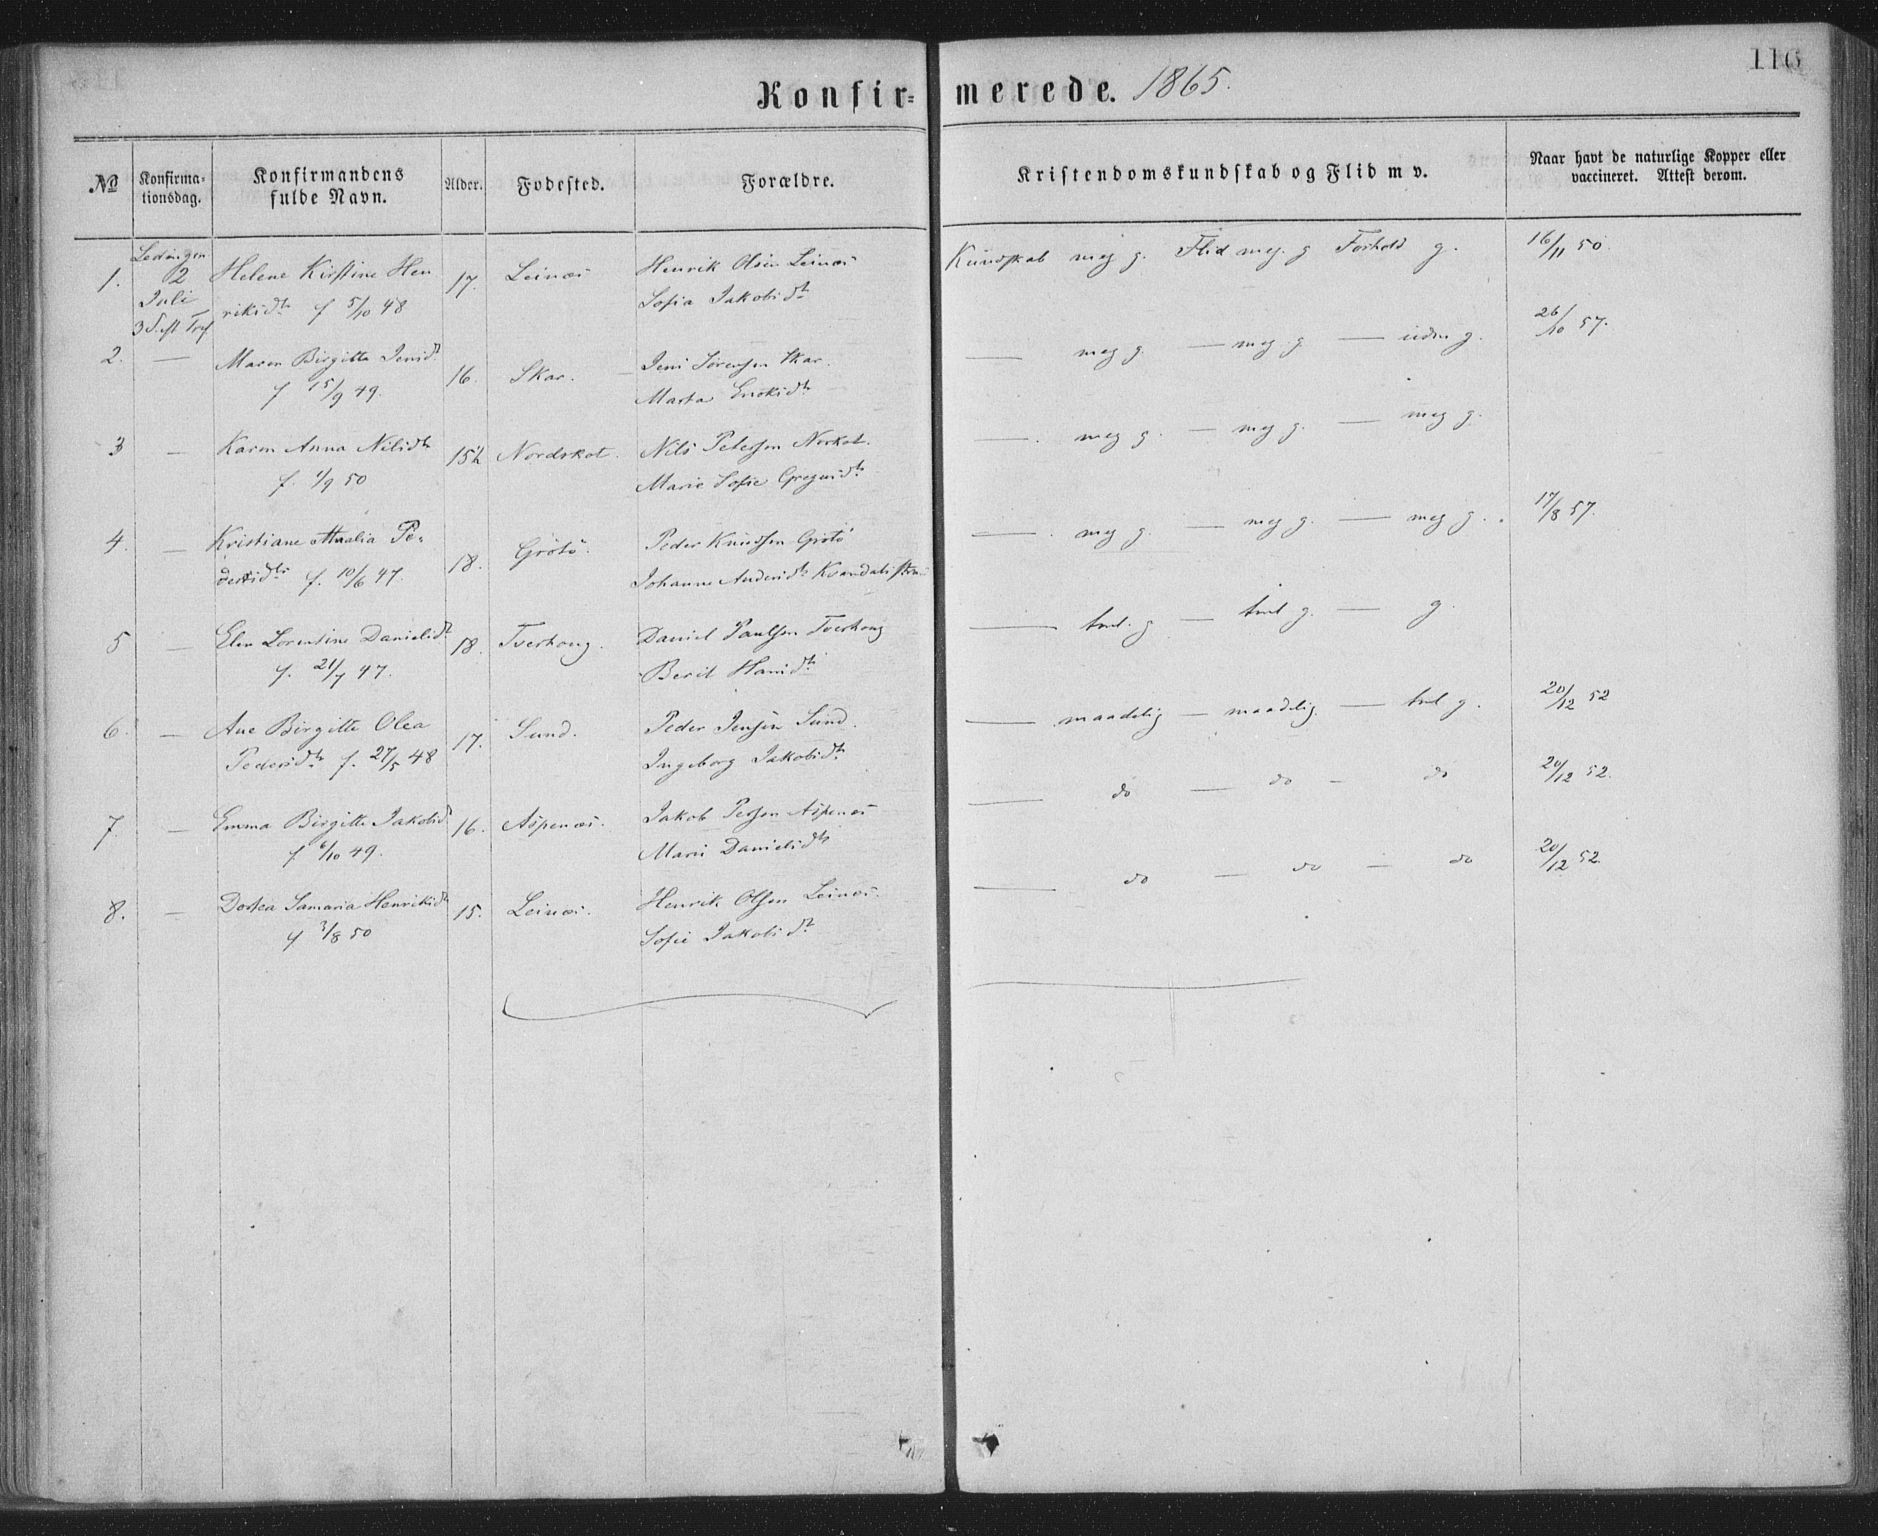 116
Konfir- merede. 1865.
№
Konfirma-
tionsdag.
Konfirmandens
fulde Navn.
Alder.
Fodested.
Forældre.
Kristendomskundskab og Flid m v.
Naar havt de naturlige Kopper eller
vaccineret. Attest derom.
1. Lødingen 2 Juli Helene Kirstine Hen
riksdtr f 5/10 48 17. Leines Henrik Olsen Leines
Sofia Jakobsdtr
Kundskab meg g. Flid meg. g Forhold g. 16/11 50.
2. — Maren Birgitte Jensdtr
f 15/9 49. 16. Skar. Jens Sørensen Skar.
Marta Enoksdtr
— meg g. — meg g — uden g. 26/10 57.
3 — Karen Anna Nilsdtr
f. 1/9 50 15½ Nordskot. Nils Petersen Norkot.
Marie Sofie Gregusdtr
— meg g. — meg g. — meg g.
4. — Kristiane Amalia Pe-
dersdtr f. 10/6 47. 18. Grøtø. Peder Knudsen Grøtø
Johanne Andersdtr
— meg g. — meg g. — meg g. 17/8 57.
5 — Elen Lorentine Danielsdtr
f. 21/7 47. 18. Tverhoug. Daniel Paulsen Tverhoug
Berit Hansdtr
— tml. g — tml g. — g.
6. — Ane Birgitte Olea
Pedersdtr f. 27/5 48 17. Sund. Peder Jensen Sund.
Ingeborg Jakobsdtr
— maadelig — maadelig. — tml g. 20/12 52
7. — Emma Birgitte Jakobsd
f 6/10 49. 16. Aspenes. Jakob Persen Aspenes
Marie Danielsdtr
— do — do — do 20/12 52.
8. — Dortea Samaria Henriksdtr
f 3/8 50 15. Leines. Henrik Olsen Leines.
Sofie Jakobsdtr
— do — do — do 20/12 52.